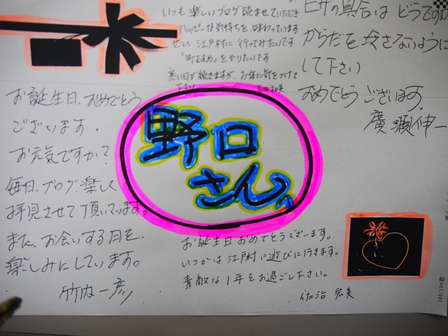 いつも楽しいブログ読ませていただき
ハッピーな気持ちを味わっています
ぜひ江戸村に行ってみたいです
をやりたいです
暑い日が続きますが お体に気をつけて
ヒザの具合はどうですか
からだをこわさないように
して下さい
おめでとうございます。
廣瀬伸一
お誕生日、おめでとう
ございます。
お元気ですか?
毎日、ブログ楽しく
拝見させて頂いてます。
また、お会いする日を
楽しみにしています。
竹内一彦
野口
さん
お誕生日おめでとうございます。
いつかは江戸村に遊びに行きます。
素敵な1年をお過ごし下さい。
佐治